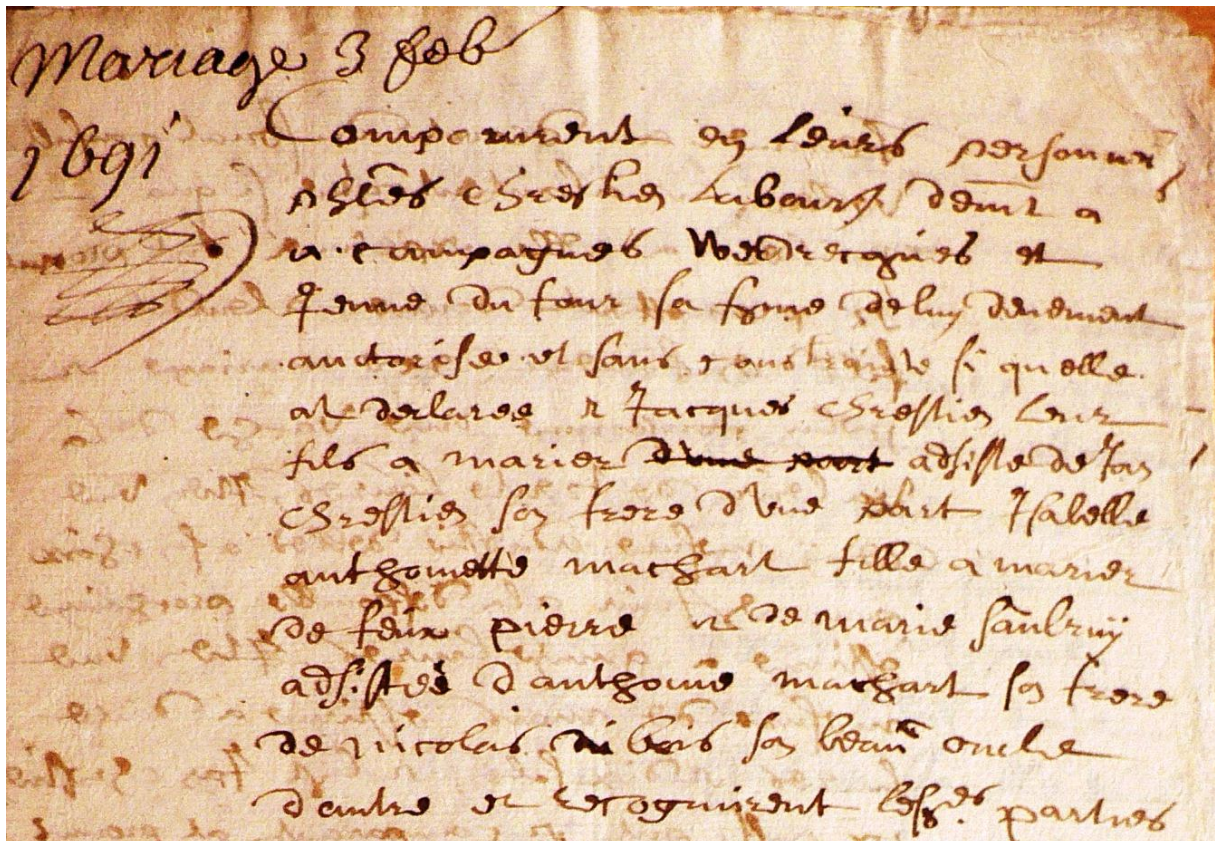 Mariage 3 feb
1691
Comparurent en leurs personnes
Chrestien labourr demt a
a campagnes Wesbrecques et
Jenne du four sa feme de luy deuement
auctorisee et sans constrainte si quelle
at declaree & Jacques Chrestien leur
fils a marier d'une part adsiste de Jan
Chrestien son frere d'une part Isabelle
anthoinette machart fille a marier
de feux pierre & de marie
adsistee d'anthoine machart son frere
de nicolas du bois son beau oncle
d'autre et recognurent parties